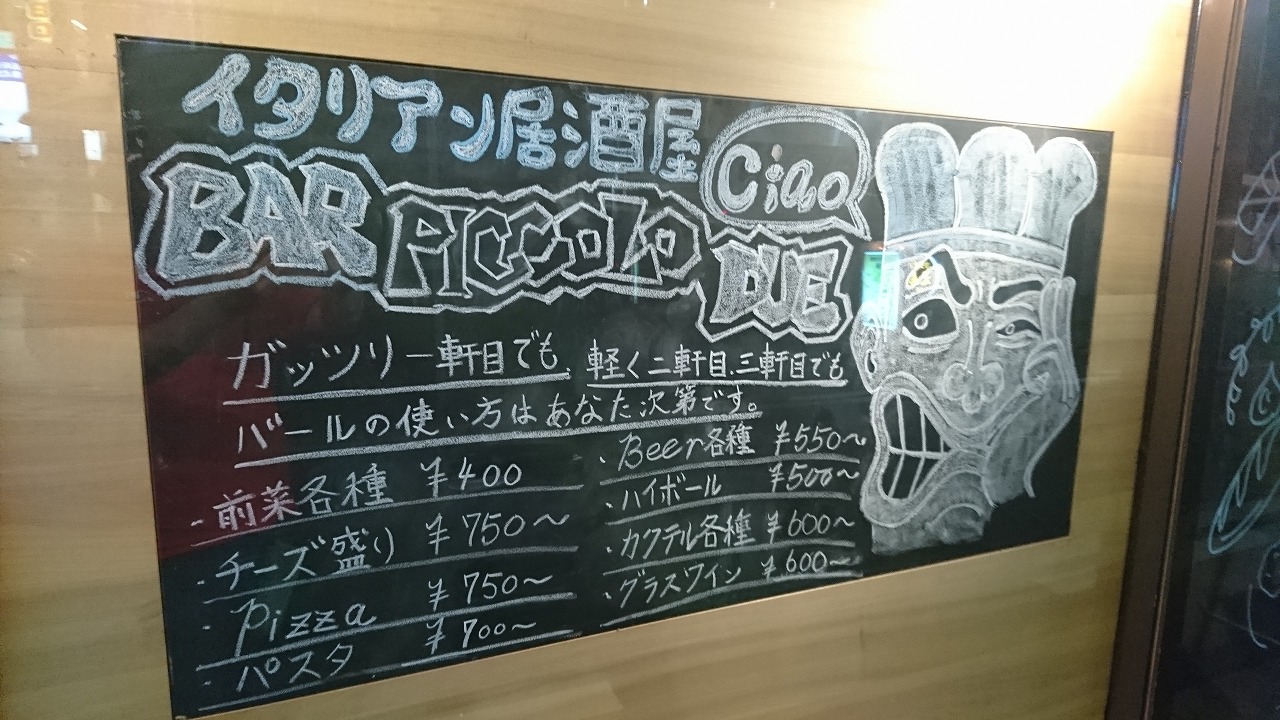 イタリアン居酒屋
Ciao
BAR PICCOLO DUE
ガッツリ一軒目でも、軽く二軒目、三軒目でも
バールの使い方はあなた次第です。
・前菜各種 ¥400
・チーズ盛り ¥750〜
・Pizza ¥750〜
・パスタ ¥700〜
・Beer各種 ¥550〜
・ハイボール ¥500〜
・カクテル各種 ¥600〜
・グラスワイン ¥600〜